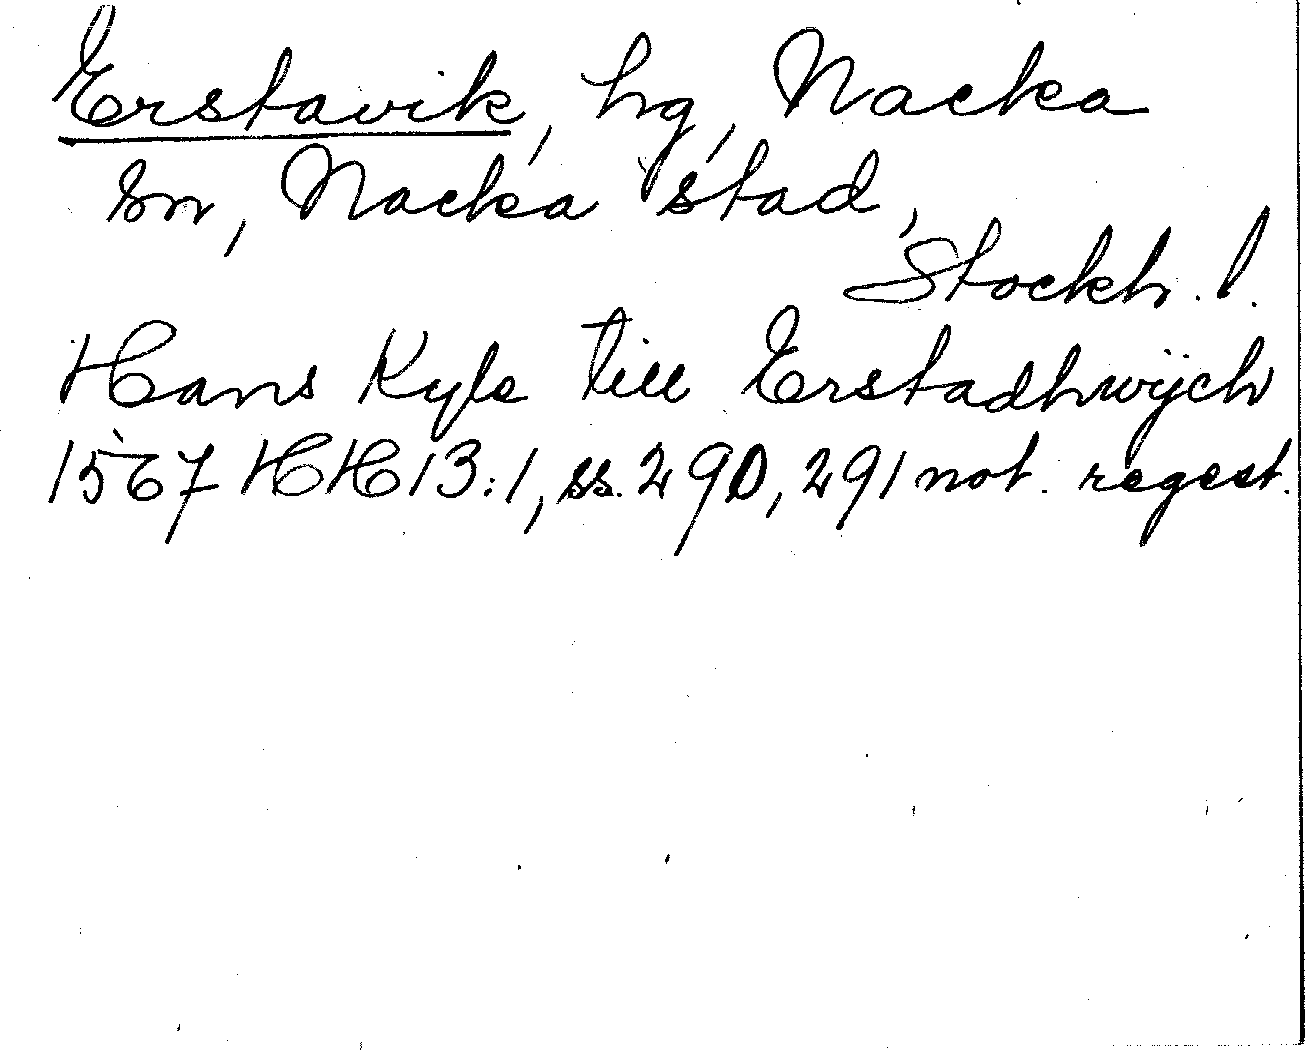 Erstavik, hg, Nacka
sn, Nacka stad,
Stockh. l.
Hans Kyle till Erstadhwÿch
1567 HH 13:1, ss. 290, 291 not. regest.